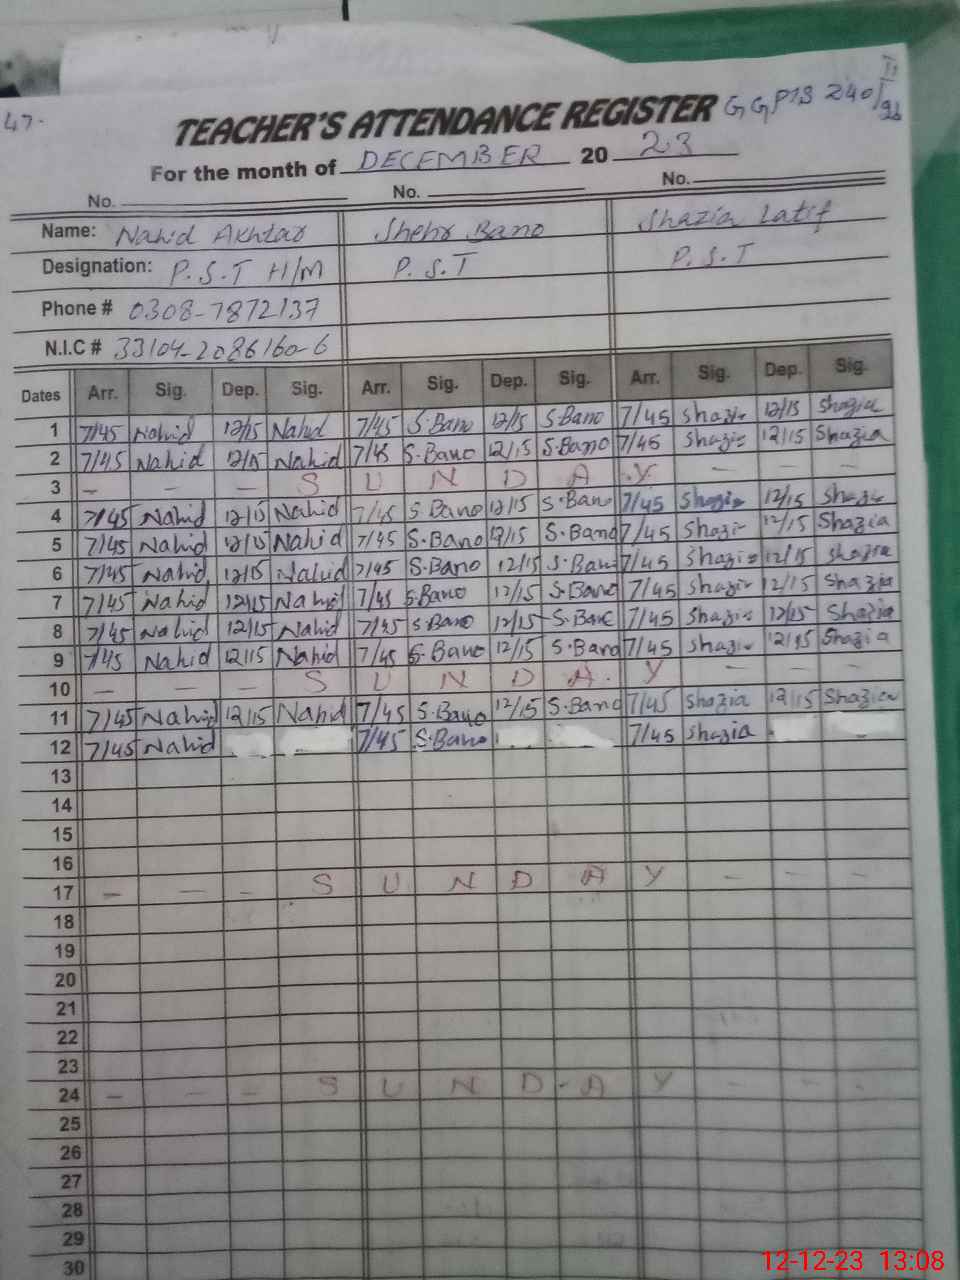 47.
TEACHER'S ATTENDANCE REGISTER GGPS 240
For the month of DECEMBER 20 23
No. No. No.
Name: Nahid Akhtar Shehr Bano Shazia Latif
Designation: P.S.T H/M P.S.T P.S.T
Phone # 0308-7872137
N.I.C # 33104-2086160-6
Dates Arr. Sig. Dep. Sig. Arr. Sig. Dep. Sig. Arr. Sig. Dep. Sig.
1 7/45 Nahid 12/15 Nahid 7/45 S.Bano 12/15 S.Bano 7/45 Shazia 12/15 Shazia
2 7/45 Nahid 12/15 Nahid 7/45 S.Bano 12/15 S.Bano 7/45 Shazia 12/15 Shazia
3 - - - S U N D A Y - - -
4 7/45 Nahid 12/15 Nahid 7/45 S.Bano 12/15 S.Bano 7/45 Shazia 12/15 Shazia
5 7/45 Nahid 12/15 Nahid 7/45 S.Bano 12/15 S.Bano 7/45 Shazia 12/15 Shazia
6 7/45 Nahid 12/15 Nahid 7/45 S.Bano 12/15 S.Bano 7/45 Shazia 12/15 Shazia
7 7/45 Nahid 12/15 Nahid 7/45 S.Bano 12/15 S.Bano 7/45 Shazia 12/15 Shazia
8 7/45 Nahid 12/15 Nahid 7/45 S.Bano 12/15 S.Bano 7/45 Shazia 12/15 Shazia
9 7/45 Nahid 12/15 Nahid 7/45 S.Bano 12/15 S.Bano 7/45 Shazia 12/15 Shazia
10 - - - S U N D A Y - - -
11 7/45 Nahid 12/15 Nahid 7/45 S.Bano 12/15 S.Bano 7/45 Shazia 12/15 Shazia
12 7/45 Nahid 7/45 S.Bano 7/45 Shazia
13
14
15
16
17 - - - S U N D A Y - - -
18
19
20
21
22
23
24 - - - S U N D A Y - - -
25
26
27
28
29
30
12-12-23 13:08